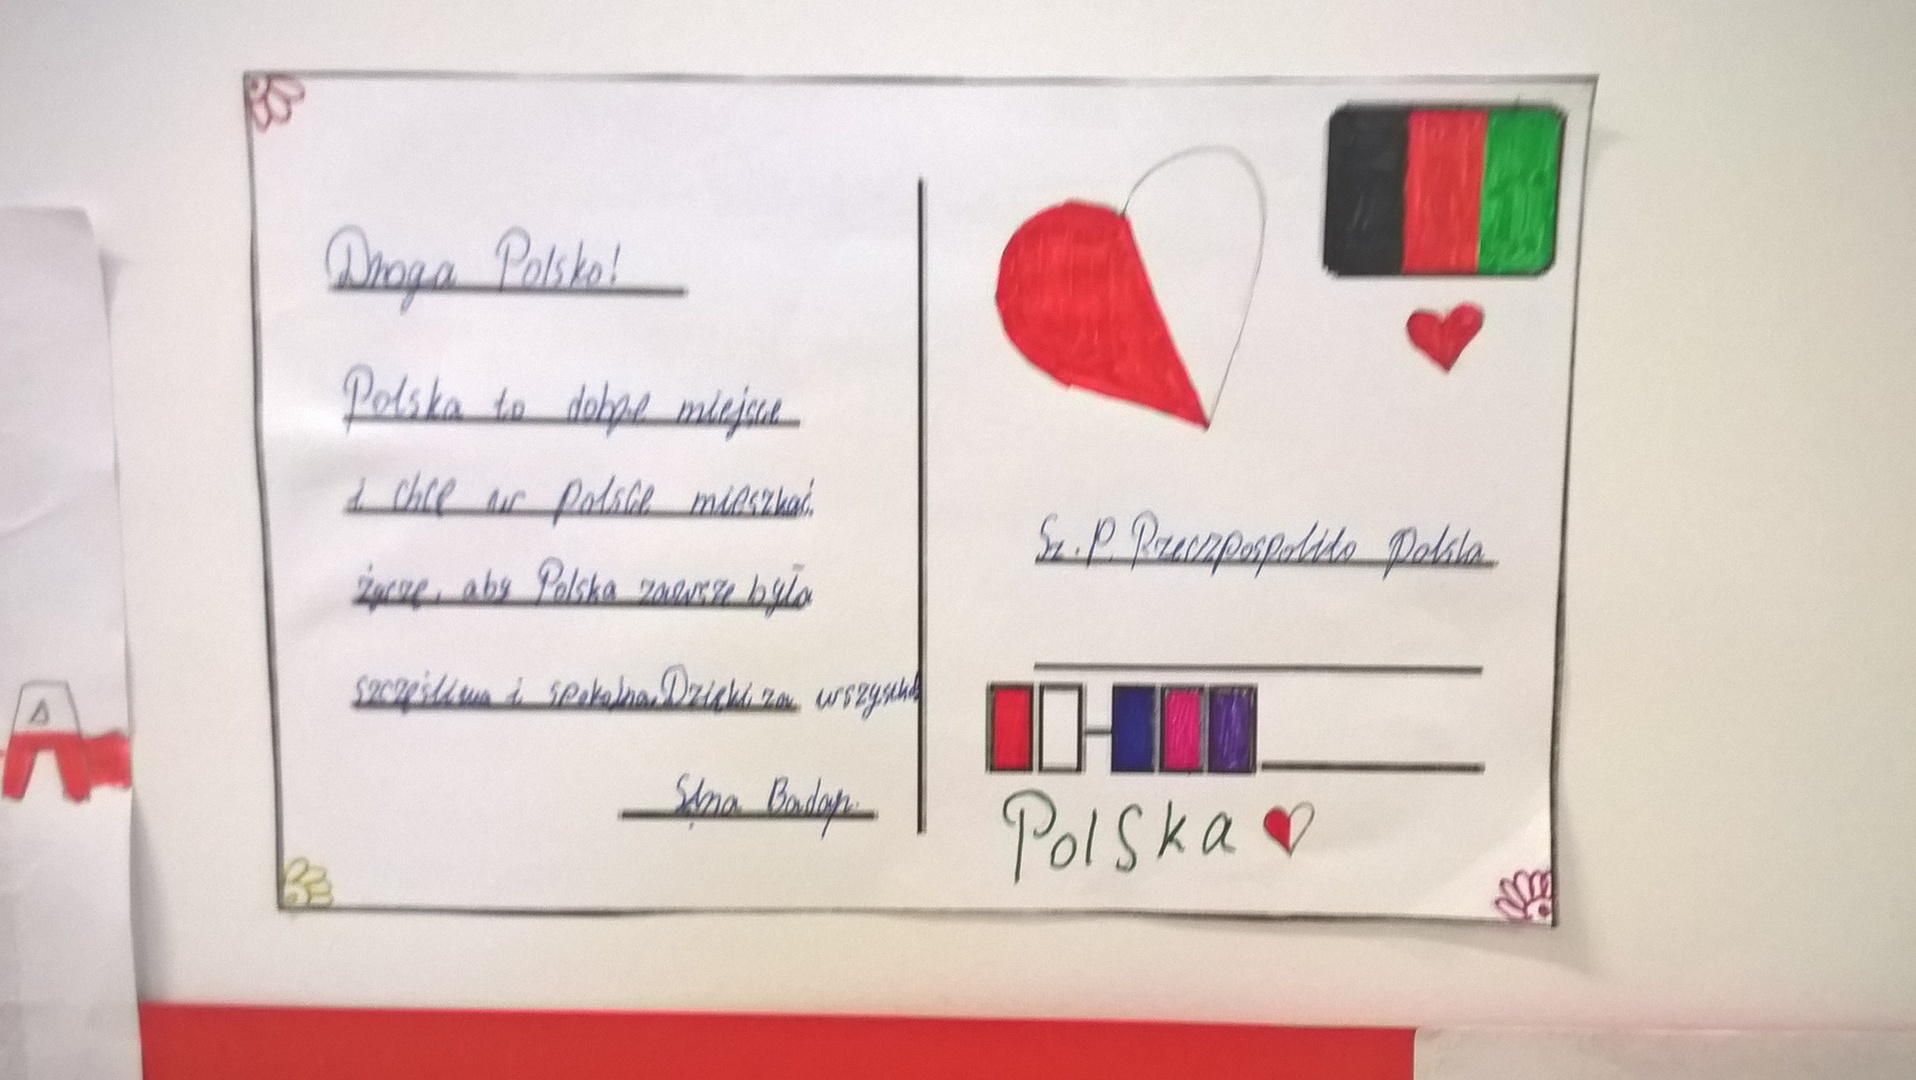 Droga Polsko!
Polska to dobre miejsce
i chcę w Polsce mieszkać.
życzę, aby Polska zawsze była
szczęśliwa i spokojna. Dzięki za wszystko
Badap.
Sz. P. Rzeczpospolito Polsla
Polska